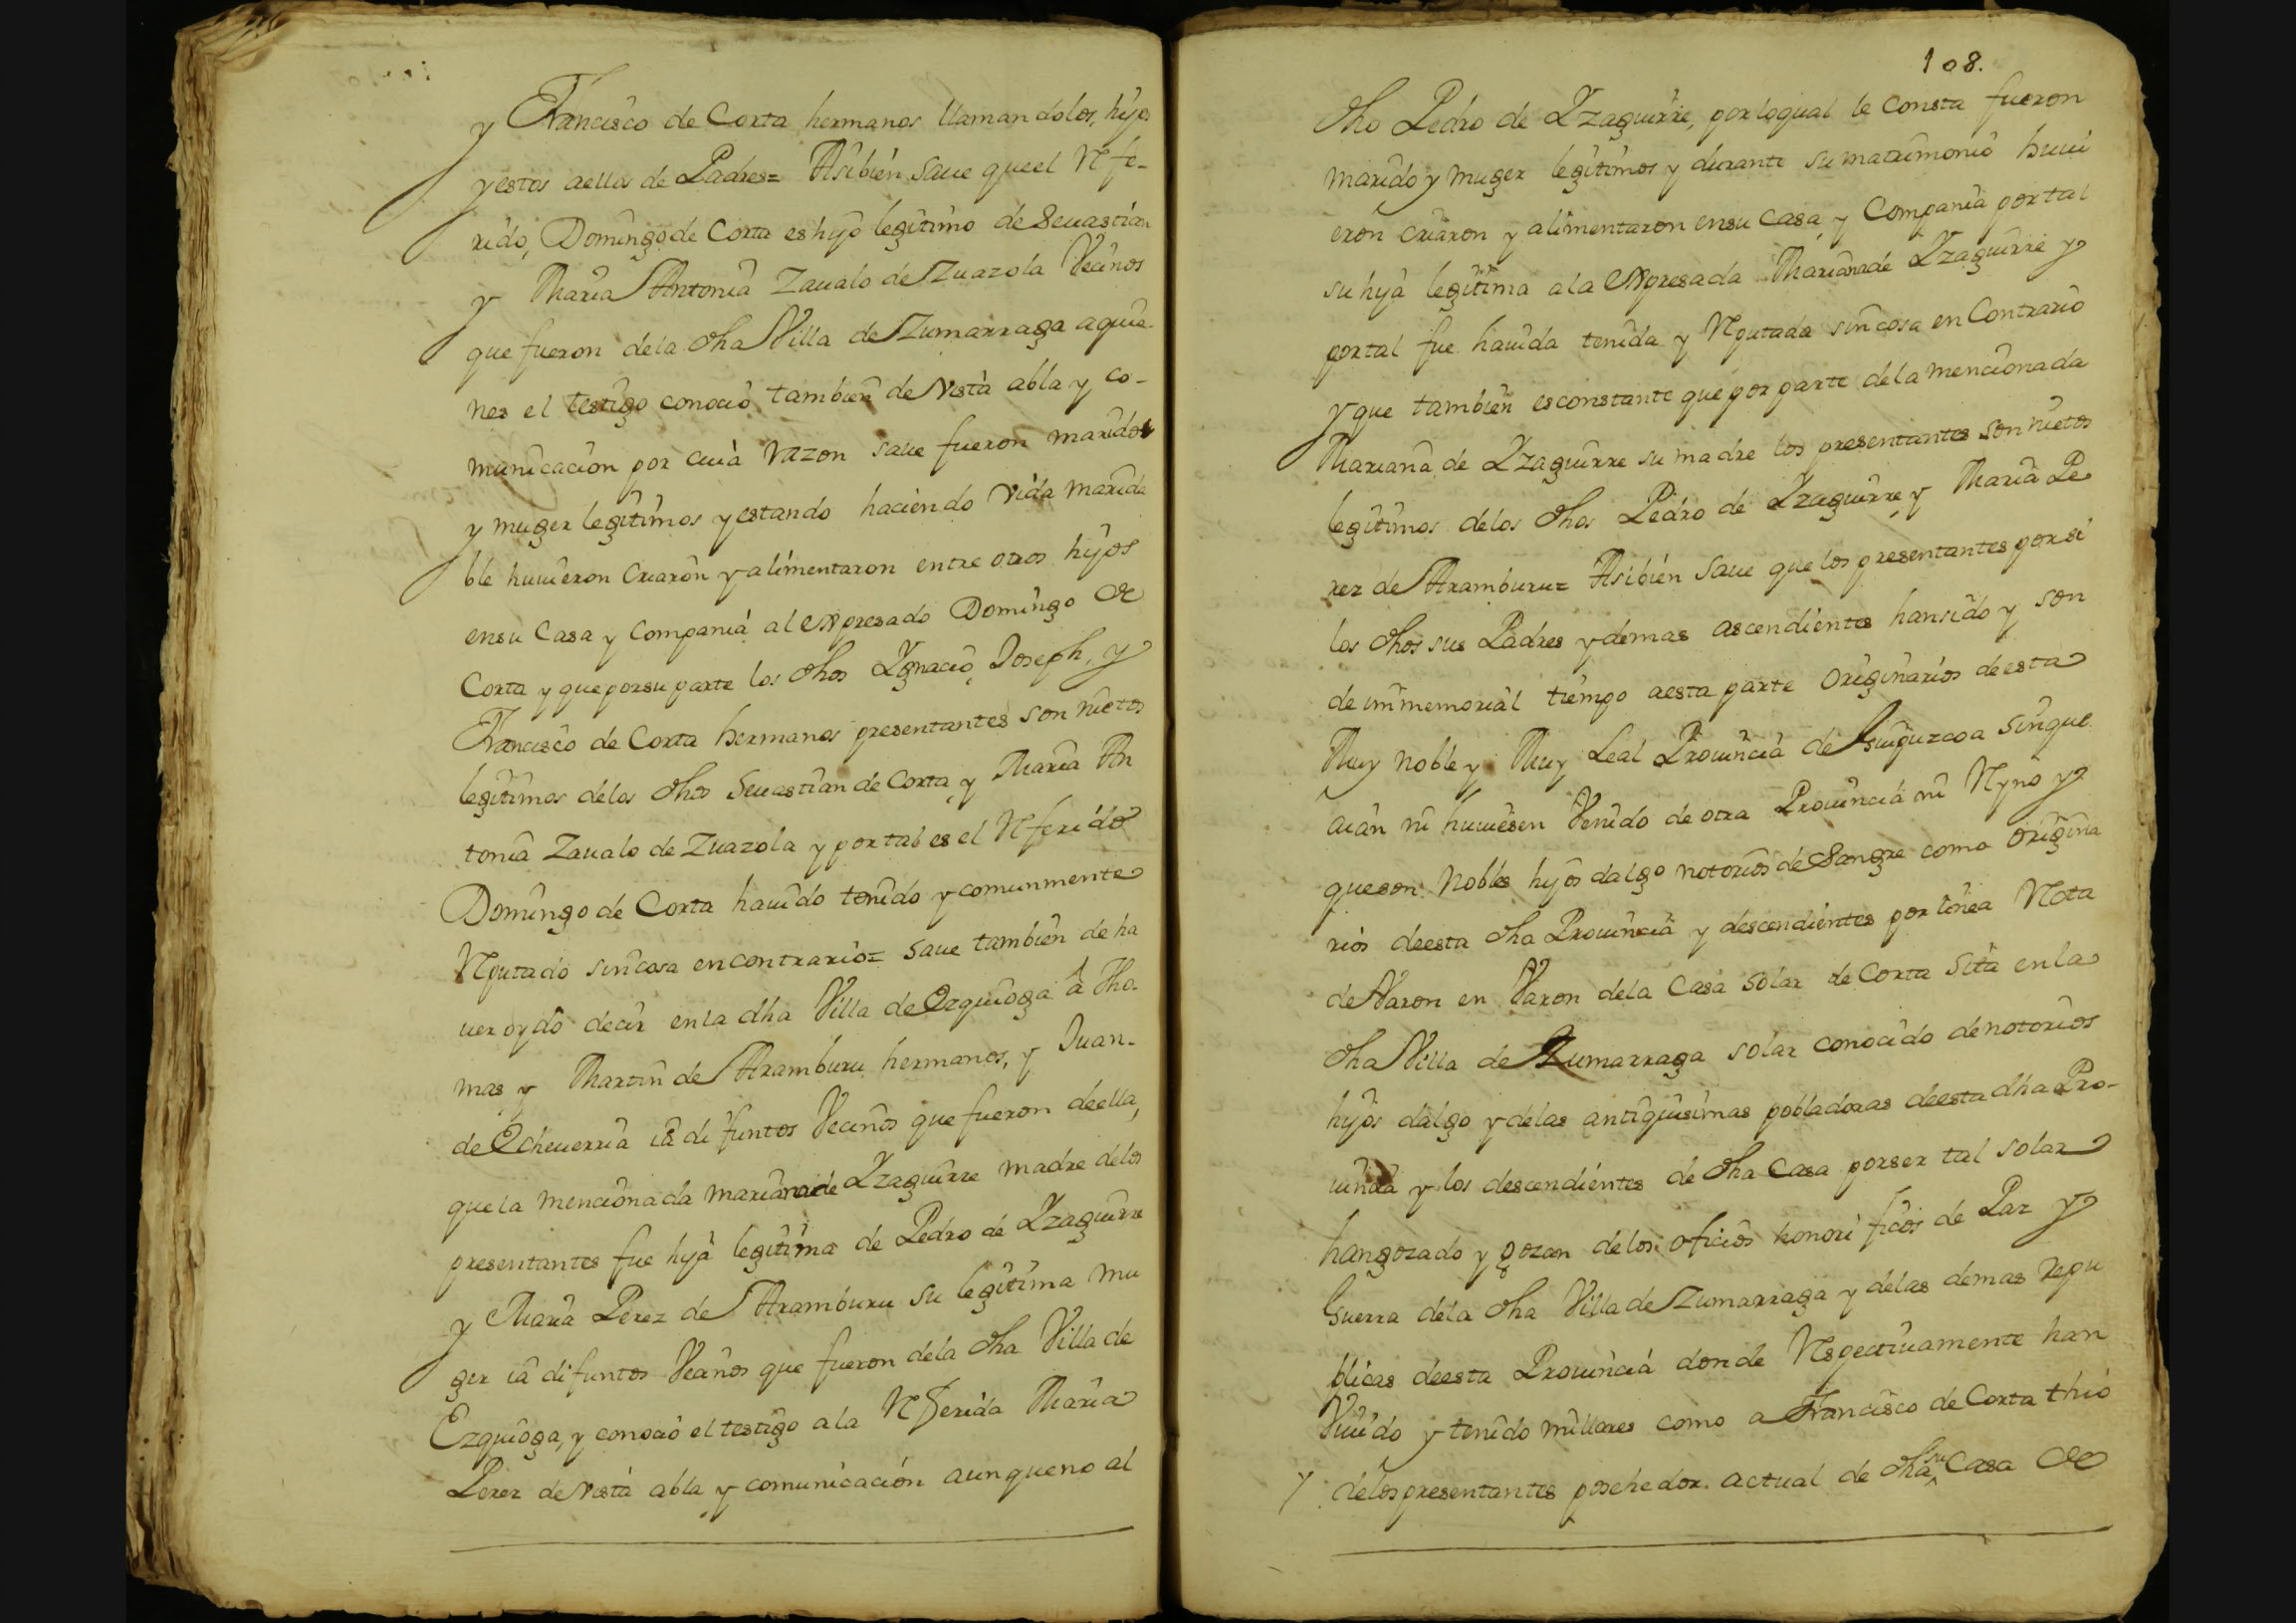 y Francisco de Corta hermanos llamandolos, hijos
y estos aellos de Padres= Asibien saue queel Refe-
rido, Domingo de Corta es hijo legitimo de Seuastian
y Maria Antonia Zaualo de Zuazola Vecinos
que fueron dela dha Villa de Zumarraga aquie-
nes el testigo conocio tambien de vista abla y co-
municacion por cuia razon saue fueron maridos
y muger legitimos y estando haciendo vida marida
ble huuieron criaron y alimentaron entre otros hijos
ensu Casa y Compania al expresado Domingo de
Corta y que porsu parte los dhos Ygnacio, Joseph, y
Francisco de Corta hermanos presentantes son nietos
legitimos delos dhos Seuastian de Corta, y Maria An
tonia Zaualo de Zuazola y por tal es el Referido
Domingo de Corta hauido tenido y comunmente
Reputado sin cosa en contrario= saue tambien de ha
uer oydo decir en la dha Villa de Ezquioga â Tho-
mas y Martin de Aramburu hermanos, y Juan-
de Echeuerria ia difuntos Vecinos que fueron deella,
que la mencionada mariana de Yzaguirre madre delos
presentantes fue hija legitima de Pedro de Yzaguirre
y Maria Perez de Aramburu su legitima mu
ger ia difuntos Vecinos que fueron dela dha Villa de
Ezquioga, y conocio el testigo ala Referida Maria
Perez de vista abla y comunicacion aunque no al
108.
dho Pedro de Yzaguirre, por loqual le Consta fueron
marido y muger legitimos y durante su matrimonio huui
eron criaron y alimentaron ensu Casa, y Compania por tal
su hija legitima ala expresada Mariana de Yzaguirre y
por tal fue hauida tenida y Reputada sin cosa en Contrario
y que tambien es constante que por parte dela mencionada
Mariana de Yzaguirre su madre los presentantes son nietos
legitimos delos dhos Pedro de Yzaguirre, y Maria Pe
rez de Aramburu= Asibien saue que los presentantes por si
los dhos sus Padres y demas ascendientes hansido y son
de immemorial tiempo aesta parte Originarios de esta
Muy noble y Muy Leal Prouincia de Guipuzcoa sin que
aian ni huuiesen Venido de otra Prouincia ni Reyno y
que son Nobles hijos dalgo notorios de Sangre como Origina
rios deesta dha Prouincia y descendientes por linea Recta
de Varon en Varon dela Casa solar de Corta sita en la
dha Villa de Zumarraga solar conocido de notorios
hijos dalgo y delas antiquisimas pobladoras deesta dha Pro-
uincia y los descendientes de dha Casa porser tal solar
hangozado y gozan delos oficios honorificos de Paz y
Guerra dela dha Villa de Zumarraga y delas demas Repu
blicas deesta Prouincia donde Respectiuamente han
Viuido y tenido millares como a Francisco de Corta thio
y delos presentantes posehedor actual de dha su Casa de